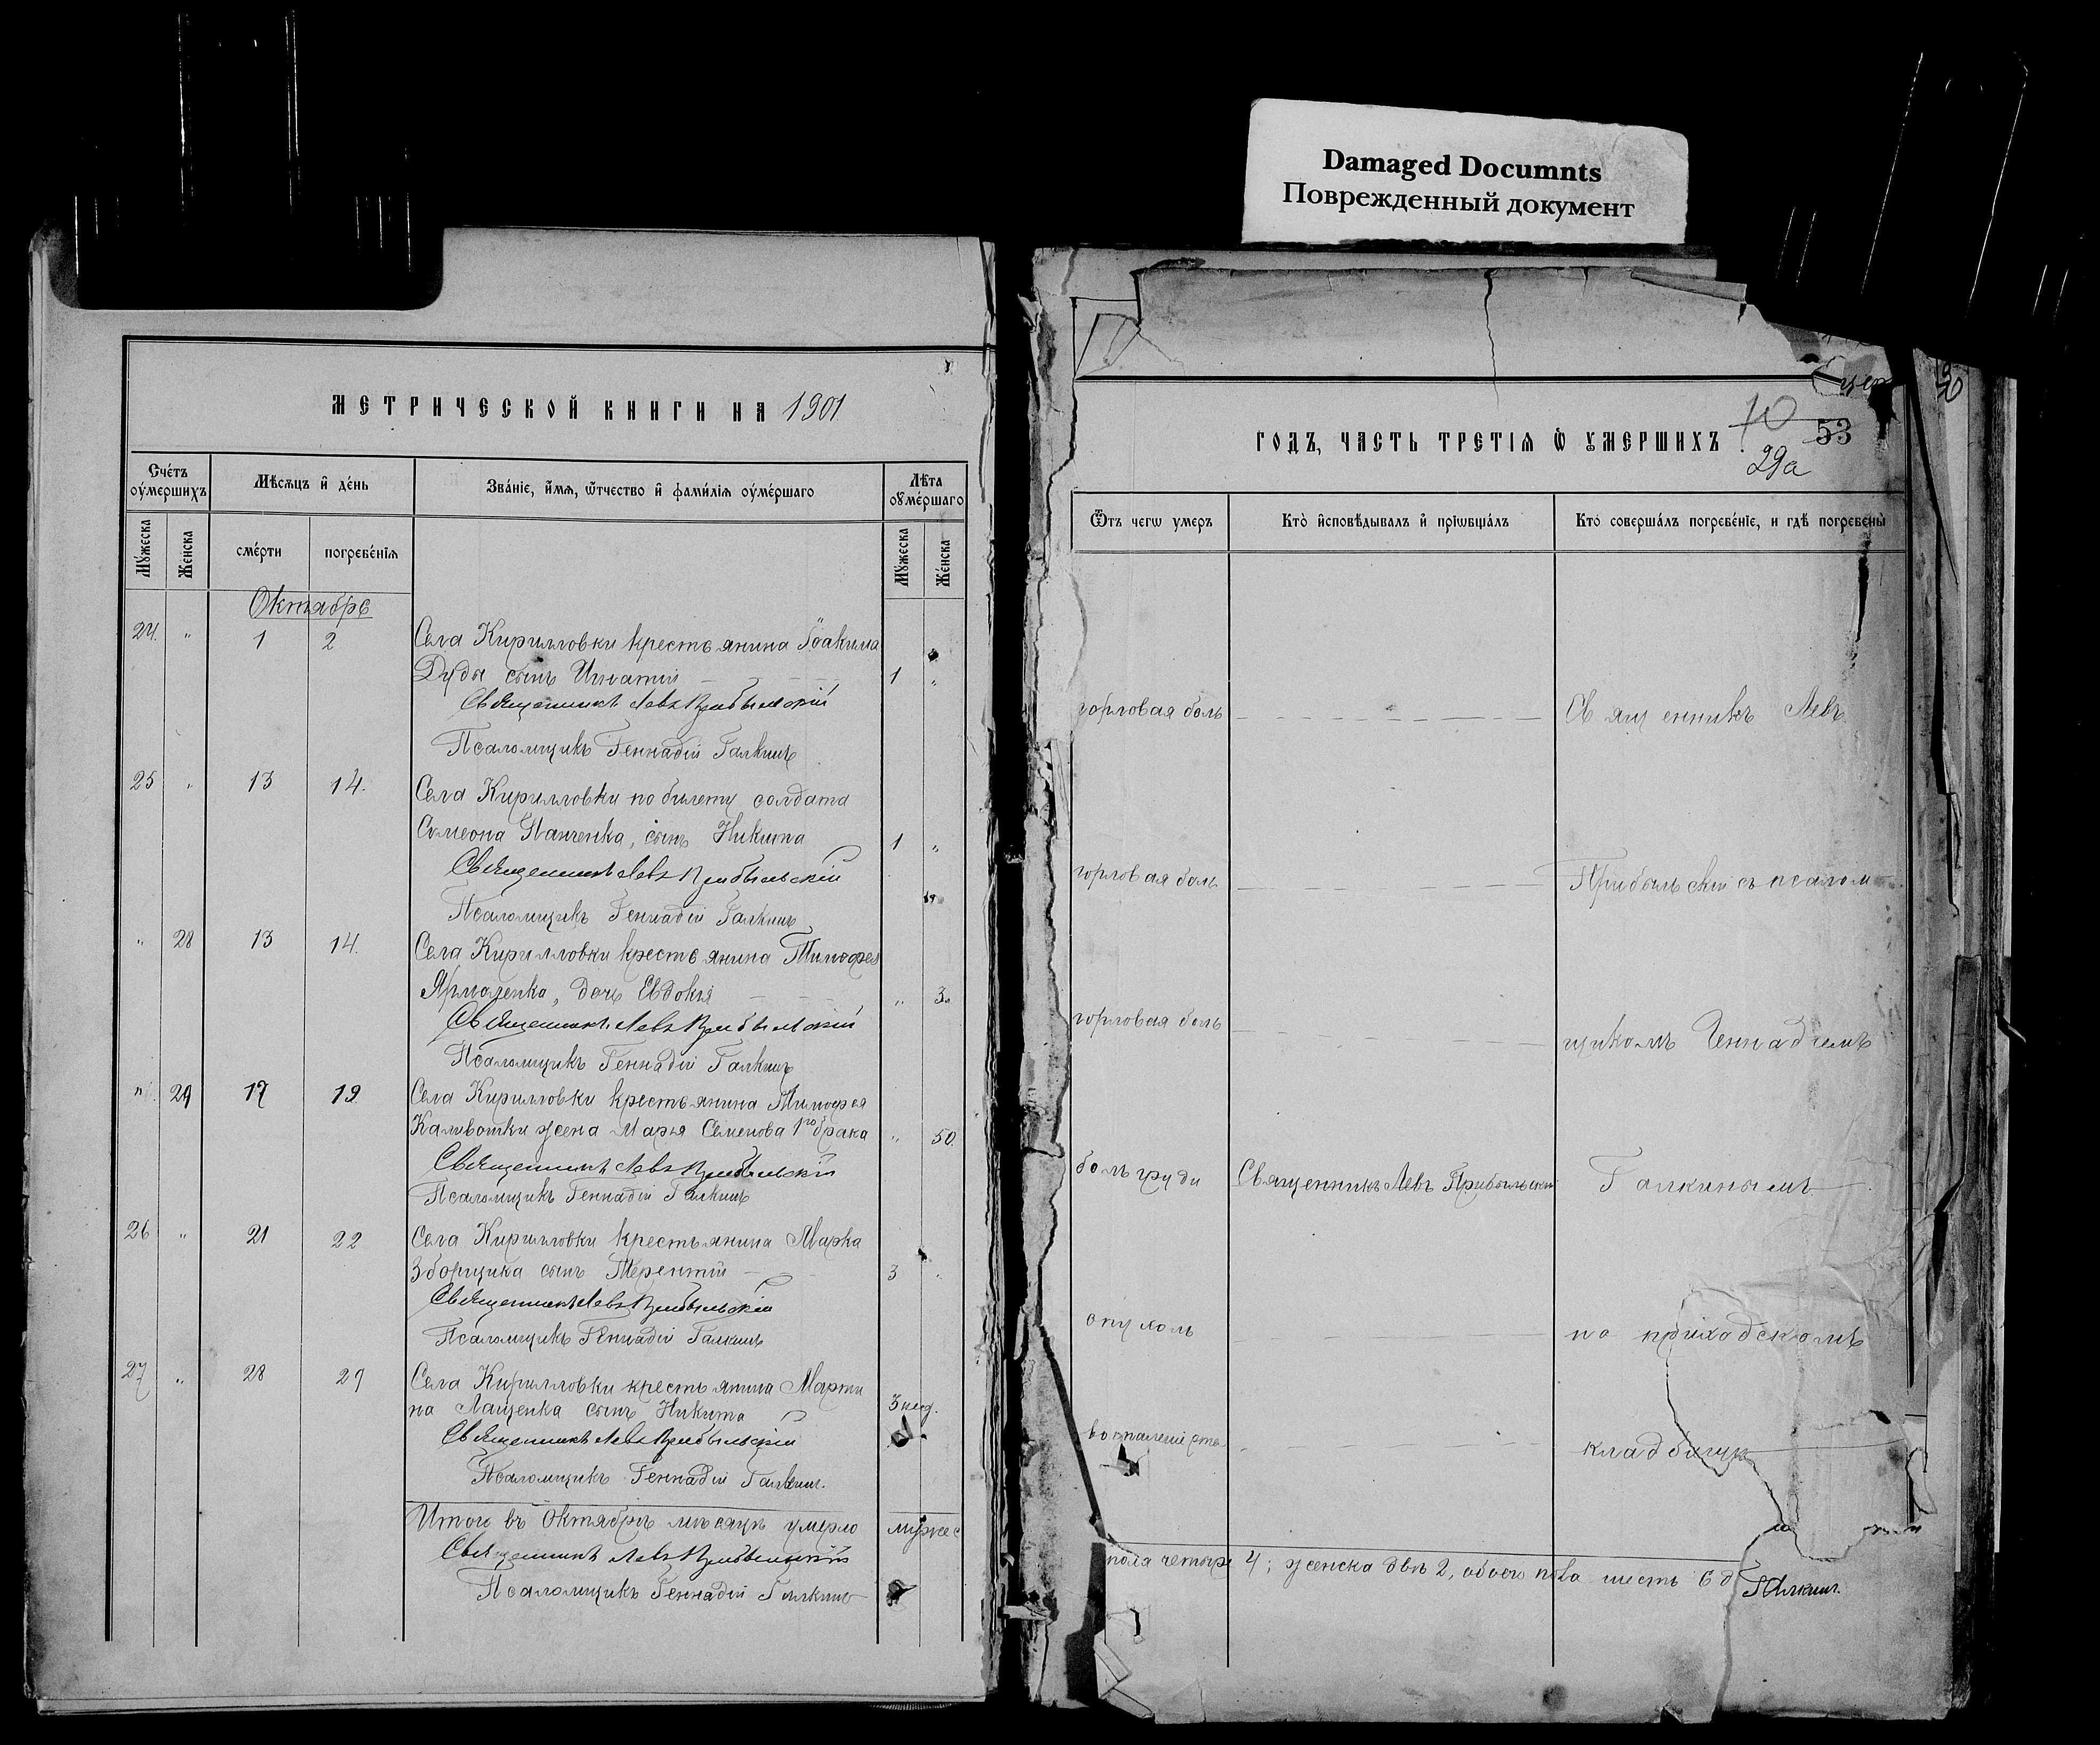 Damaged Documnts
Поврежденный документ
МЕТРИЧЕСКОЙ КНИГИ НА 1901
Счетъ оумершихъ
Мѣсяцъ и день
Званіе, имя, отчество и фамилія оумершаго
Лѣта оумершаго
Мужеска
Женска
смерти
погребенія
Мужеска
Женска
Октябрь
24 " 1 2 Села Кирилловки крестьянина Іоакима
Дуды сынъ Игнатій 1 "
Священникъ Левъ Прибыльскій
Псаломщикъ Геннадій Галкинъ
25 " 13 14. Села Кирилловки по билету солдата
Симеона Панченка, сынъ Никита 1 "
Священникъ Левъ Прибыльскій
Псаломщикъ Геннадій Галкинъ
" 28 13 14. Села Кирилловки крестьянина Тимофея
Ярмоленко, дочь Евдокія " 3
Священникъ Левъ Прибыльскій
Псаломщикъ Геннадій Галкинъ
" 29 17 19 Села Кирилловки крестьянина Тимофея
жена Марья Семенова 1го брака " 50.
Священникъ Левъ Прибыльскій
Псаломщикъ Геннадій Галкинъ
26 " 21 22 Села Кирилловки крестьянина Марка
Зборщика сынъ Терентій 3 "
Священникъ Левъ Прибыльскій
Псаломщикъ Геннадій Галкинъ
27 " 28 29 Села Кирилловки крестьянина Марти
на Лащенка сынъ Никита 3 нед.
Священникъ Левъ Прибыльскій
Псаломщикъ Геннадій Галкинъ.
Итого въ Октябрѣ мѣсяцѣ умерло мужес
Священникъ Левъ Прибыльскій
Псаломщикъ Геннадій Галкинъ
ГОДЪ, ЧАСТЬ ТРЕТІЯ Ѡ УМЕРШИХЪ
70
53
29а
Отъ чего умеръ
Кто исповѣдывалъ и пріобщалъ
Кто совершалъ погребеніе, и гдѣ погребены
горловая боль Священникъ Левъ
горловая боль Прибыльскій съ псалом
горловая боль щикомъ Геннадіемъ
боль груди Священникъ Левъ Прибыльскій Галкинымъ
опухоль на приходскомъ
кладбищѣ
пола четыре 4; женска двѣ 2, обоего пола шесть 6
Галкинъ.